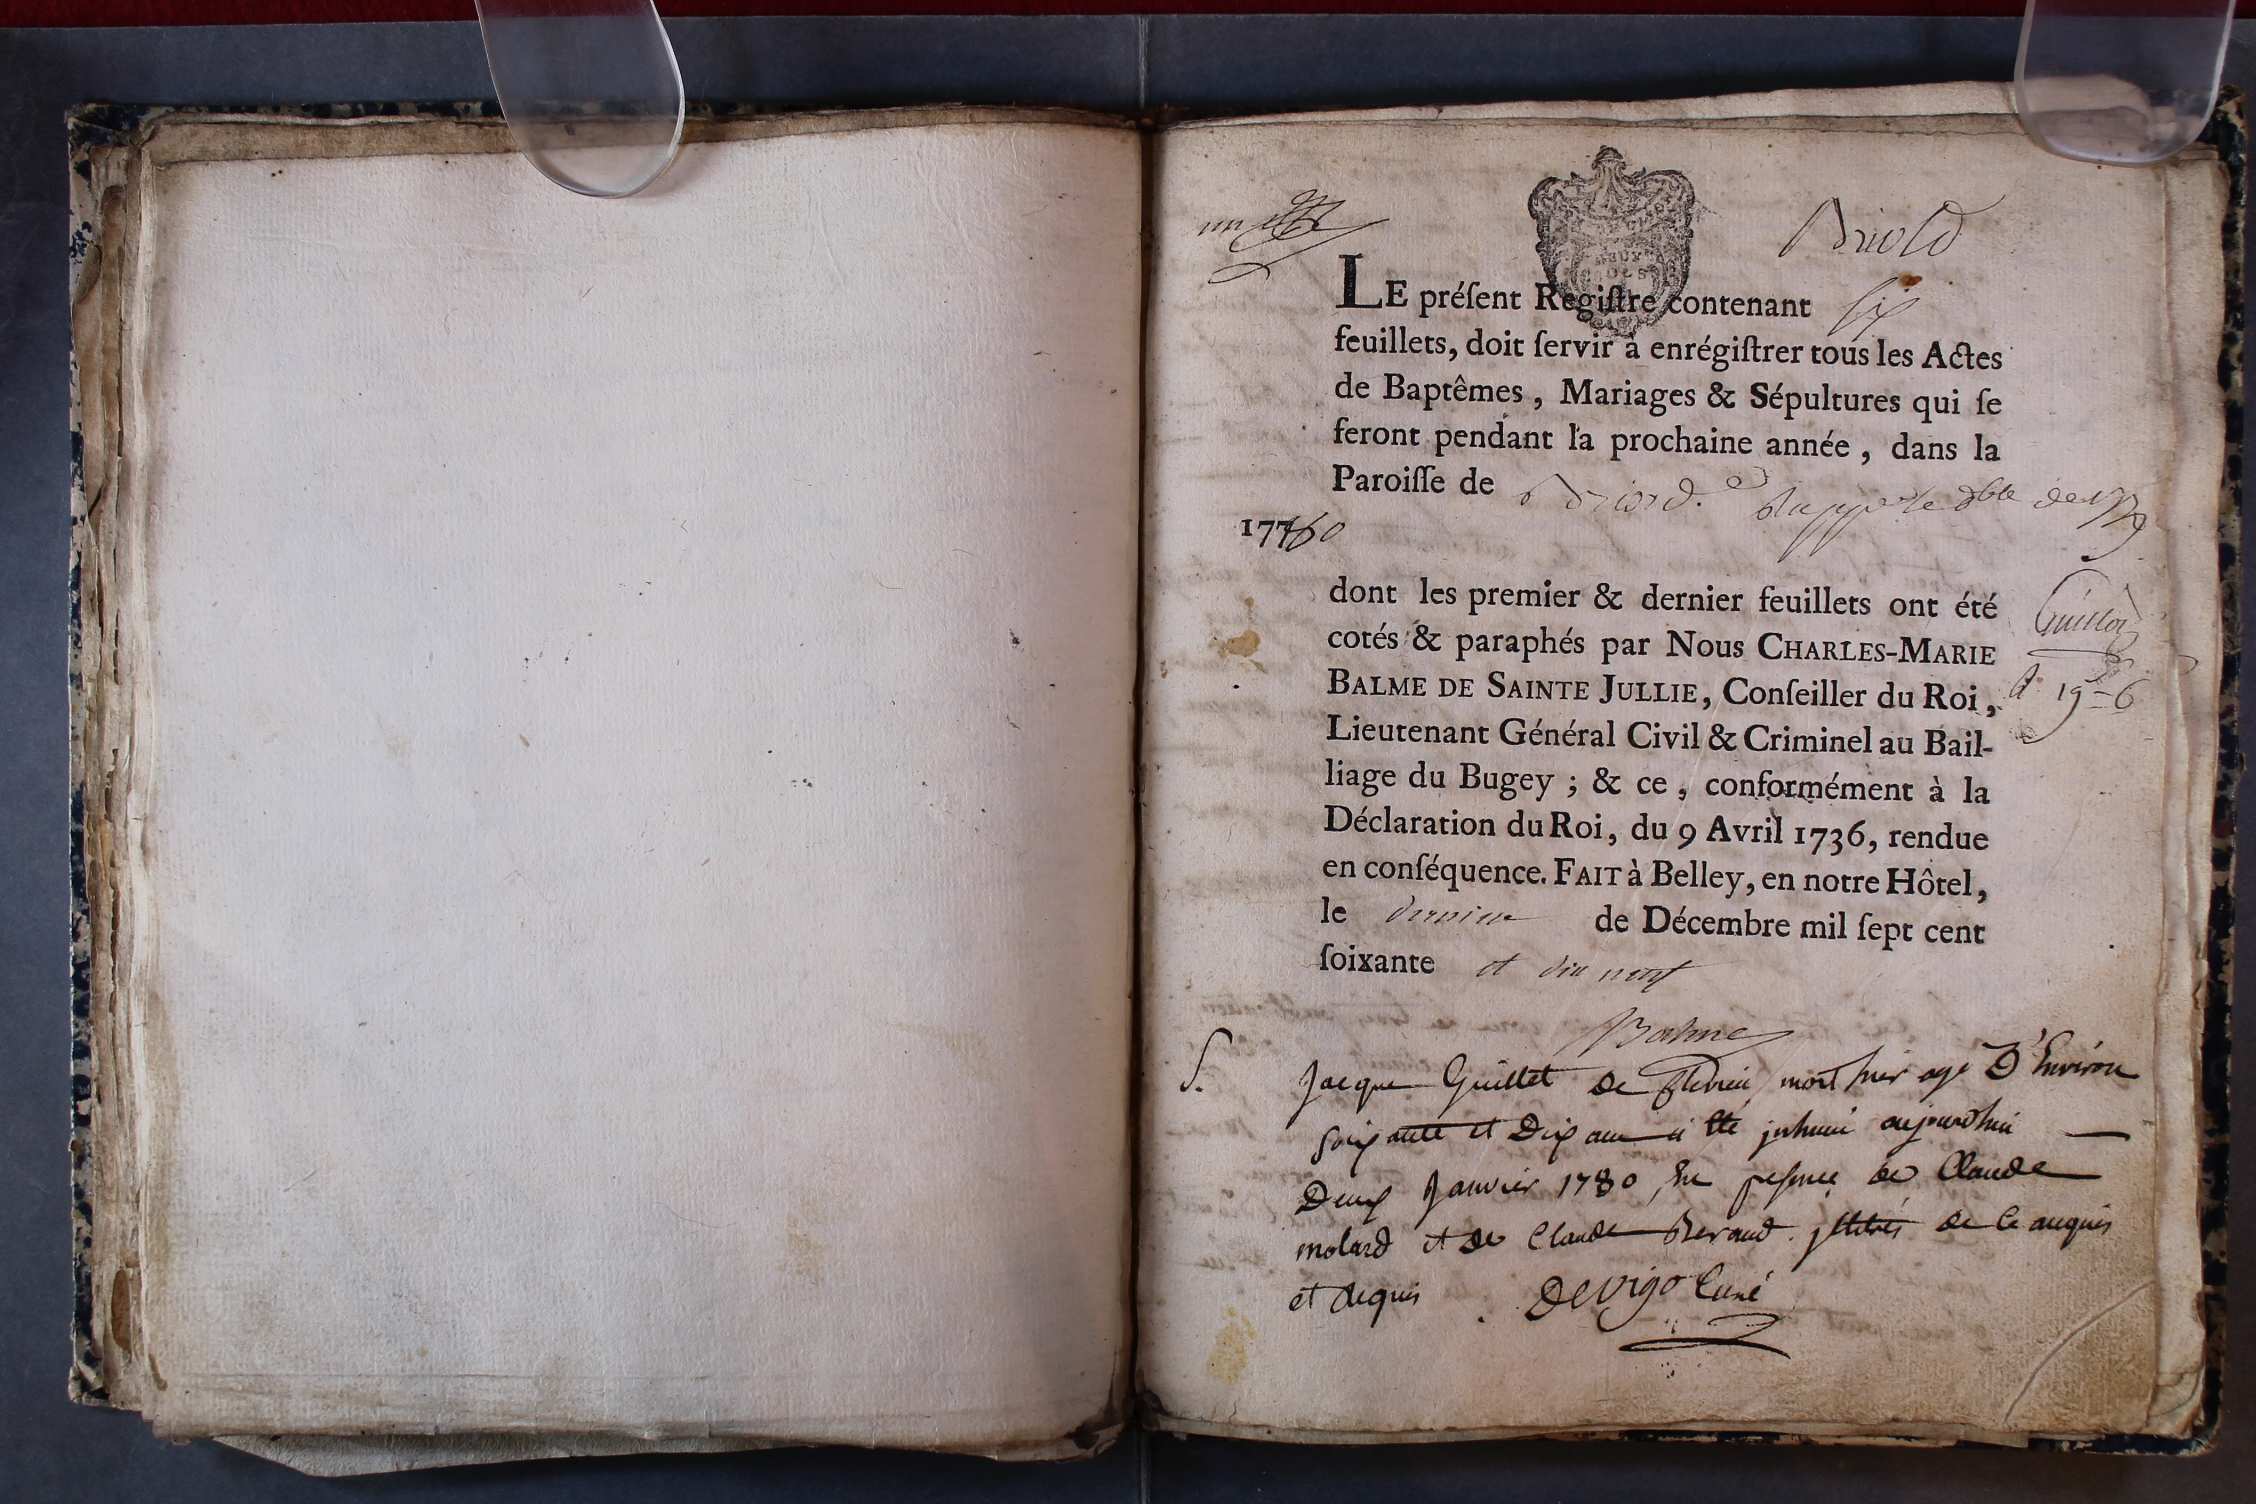 un
Briold
LE préſent Regiſtre contenant six
feuillets, doit ſervir à enrégiſtrer tous les Actes
de Baptêmes, Mariages & Sépultures qui ſe
feront pendant la prochaine année, dans la
Paroiſſe de Briord.
1780
dont les premier & dernier feuillets ont été
cotés & paraphés par Nous CHARLES-MARIE
BALME DE SAINTE JULLIE, Conſeiller du Roi,
Lieutenant Général Civil & Criminel au Bail-
liage du Bugey ; & ce, conformément à la
Déclaration du Roi, du 9 Avril 1736, rendue
en conſéquence. FAIT à Belley, en notre Hôtel,
le dernier de Décembre mil ſept cent
ſoixante et dix neuf
Balme
Guillot
19-6
S.
Jacque Guillet de flevieu mort hier age D'Environ
soixante et Dix ans a été jnhumé aujourdhui
Deux Janvier 1780 En presence de Claude
molard et de Claude Beraud jlletrés de ce enquis
et requis Devigo Curé